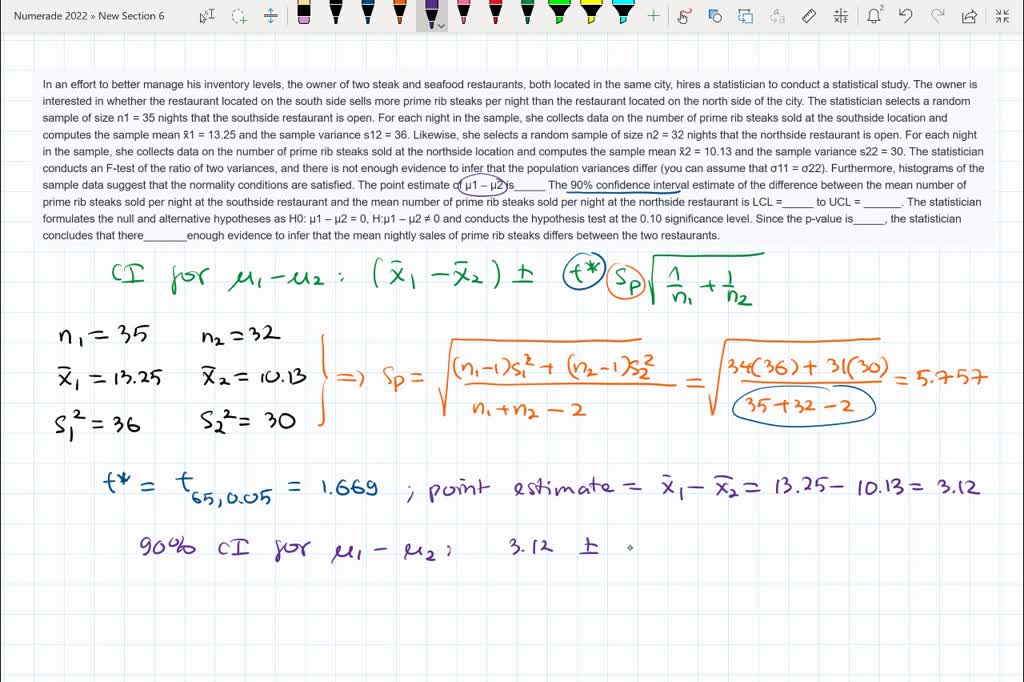 Numerade 2022 » New Section 6
2
In an effort to better manage his inventory levels, the owner of two steak and seafood restaurants, both located in the same city, hires a statistician to conduct a statistical study. The owner is
interested in whether the restaurant located on the south side sells more prime rib steaks per night than the restaurant located on the north side of the city. The statistician selects a random
sample of size n1 = 35 nights that the southside restaurant is open. For each night in the sample, she collects data on the number of prime rib steaks sold at the southside location and
computes the sample mean x̄1 = 13.25 and the sample variance s12 = 36. Likewise, she selects a random sample of size n2 = 32 nights that the northside restaurant is open. For each night
in the sample, she collects data on the number of prime rib steaks sold at the northside location and computes the sample mean x̄2 = 10.13 and the sample variance s22 = 30. The statistician
conducts an F-test of the ratio of two variances, and there is not enough evidence to infer that the population variances differ (you can assume that σ11 = σ22). Furthermore, histograms of the
sample data suggest that the normality conditions are satisfied. The point estimate of μ1 − μ2 is_____ The 90% confidence interval estimate of the difference between the mean number of
prime rib steaks sold per night at the southside restaurant and the mean number of prime rib steaks sold per night at the northside restaurant is LCL =_____ to UCL = ______. The statistician
formulates the null and alternative hypotheses as H0: μ1 − μ2 = 0, H:μ1 − μ2 ≠ 0 and conducts the hypothesis test at the 0.10 significance level. Since the p-value is_____, the statistician
concludes that there_______enough evidence to infer that the mean nightly sales of prime rib steaks differs between the two restaurants.
CI for μ₁−μ₂: (x̄₁ − x̄₂) ± t* Sp √(1/n₁ + 1/n₂)
n₁ = 35 n₂ = 32
x̄₁ = 13.25 x̄₂ = 10.13
S₁² = 36 S₂² = 30
⇒ Sp = √((n₁−1)S₁² + (n₂−1)S₂² / n₁+n₂−2) = √(34(36) + 31(30) / 35+32−2) = 5.757
t* = t₆₅,₀.₀₅ = 1.669 ; point estimate = x̄₁ − x̄₂ = 13.25 − 10.13 = 3.12
90% CI for μ₁ − μ₂: 3.12 ±